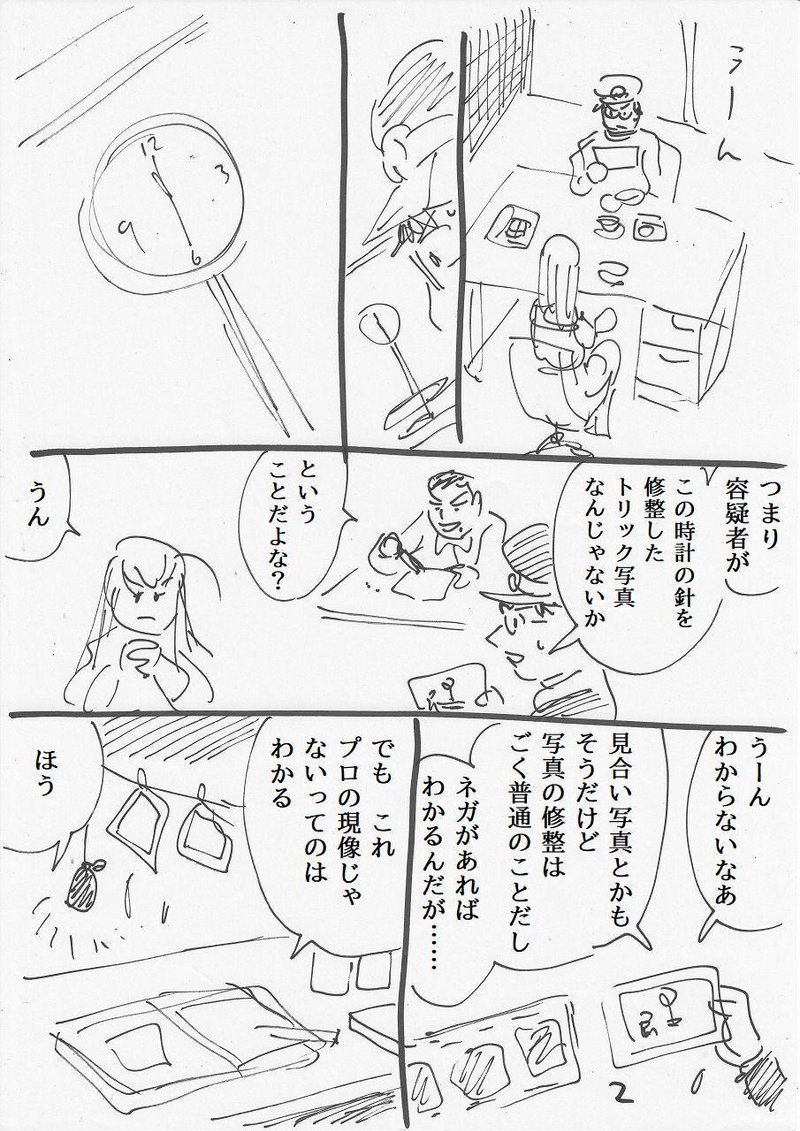 うーん
12
3
9
6
つまり
容疑者が
この時計の針を
修整した
トリック写真
なんじゃないか
という
ことだよな？
うん
うーん
わからないなあ
見合い写真とかも
そうだけど
写真の修整は
ごく普通のことだし
ネガがあれば
わかるんだが……
でも　これ
プロの現像じゃ
ないってのは
わかる
ほう